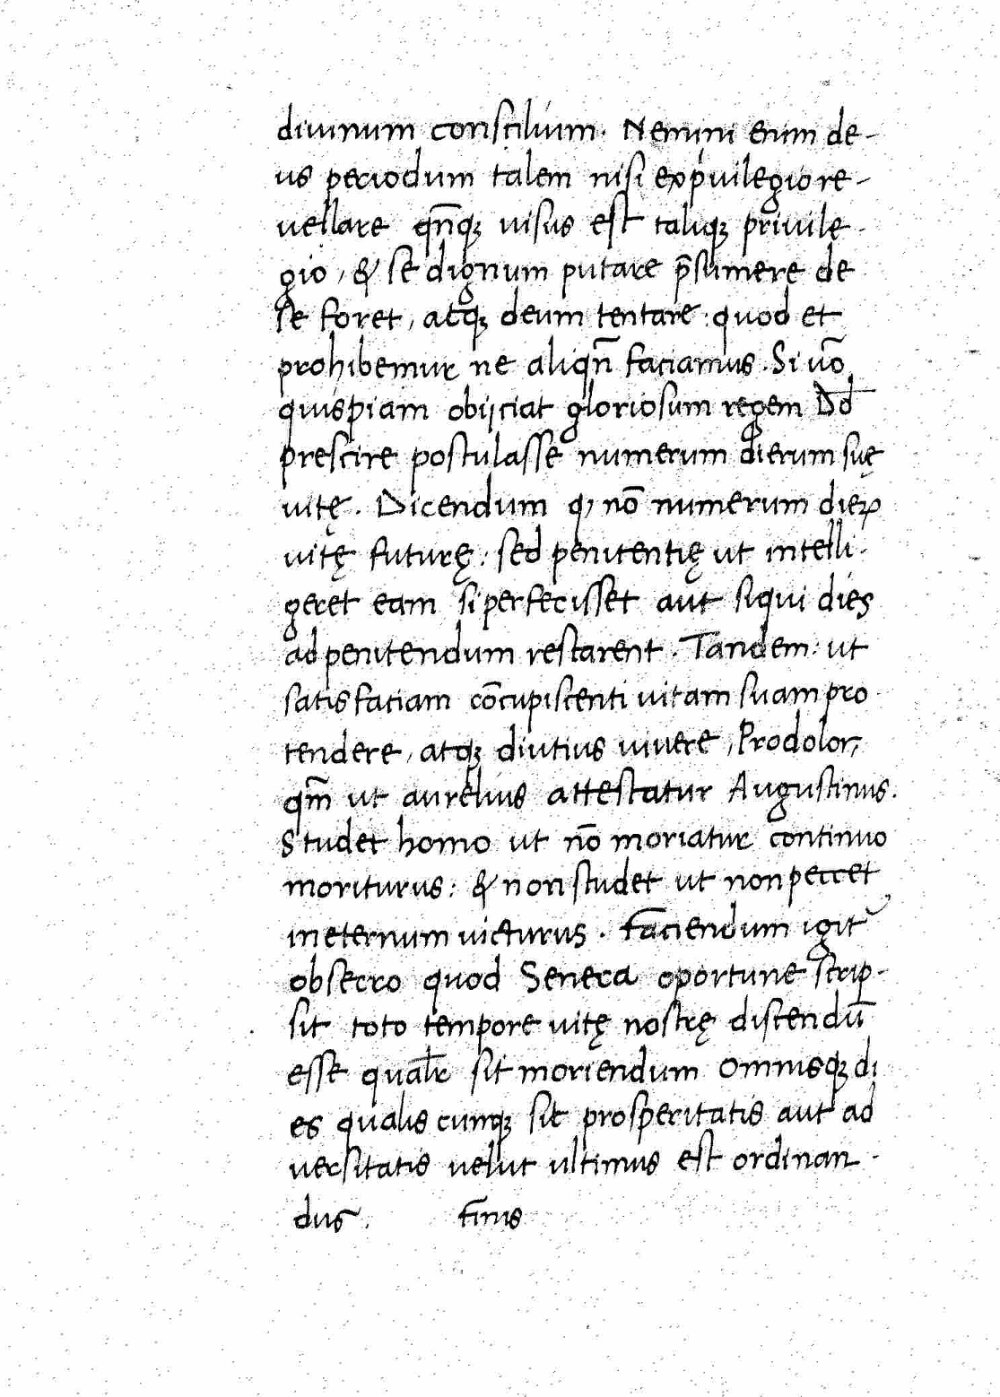 diuinum consciliuim. Nemini enim de-
us periodum talem nisi ex p̓uilegio re-
vellare qn̄q; uisus est taliq; priuile-
gio, & se dignum putare p̄sumere de
se foret, atq; deum tentare: quod et
prohibemur ne aliqn̄ faciamus. Si uō
quispiam obijciat gloriosum regem Dd̄
prescire postulasse numerum dierum suę
uitę. Dicendum q, nō numerum dieꝝ
uitę futurę: sed penitentię ut intelli-
geret eam si perfecisset aut siqui dies
ad penitendum restarent. Tandem: ut
satisfatiam cōcupiscenti uitam suam pro-
tendere, atq; diutius uiuere, Prodolor,
qm̄ ut aurelius attestatur Augustinus.
Studet homo ut nō moriatur continuo
moriturus: & non studet ut non peccet
in eternum uicturus. Faciendum igit᷑
obsecro quod Seneca oportune scrip-
sit toto tempore uitę nostrę discendū
esse qualr̄ sit moriendum Omnisq; di
es qualiscunq; sit prosperitatis aut ad
uersitatis uelut ultimus est ordinan-
dus. Finis